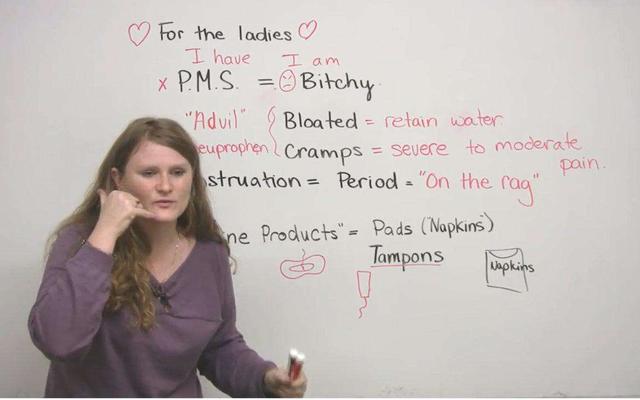 For the ladies
I have I am
x P.M.S. = Bitchy
"Advil" Bloated = retain water
euprophen Cramps = severe to moderate
pain.
struation = Period = "On the rag"
ne Products" = Pads ("Napkins")
Tampons
Napkins